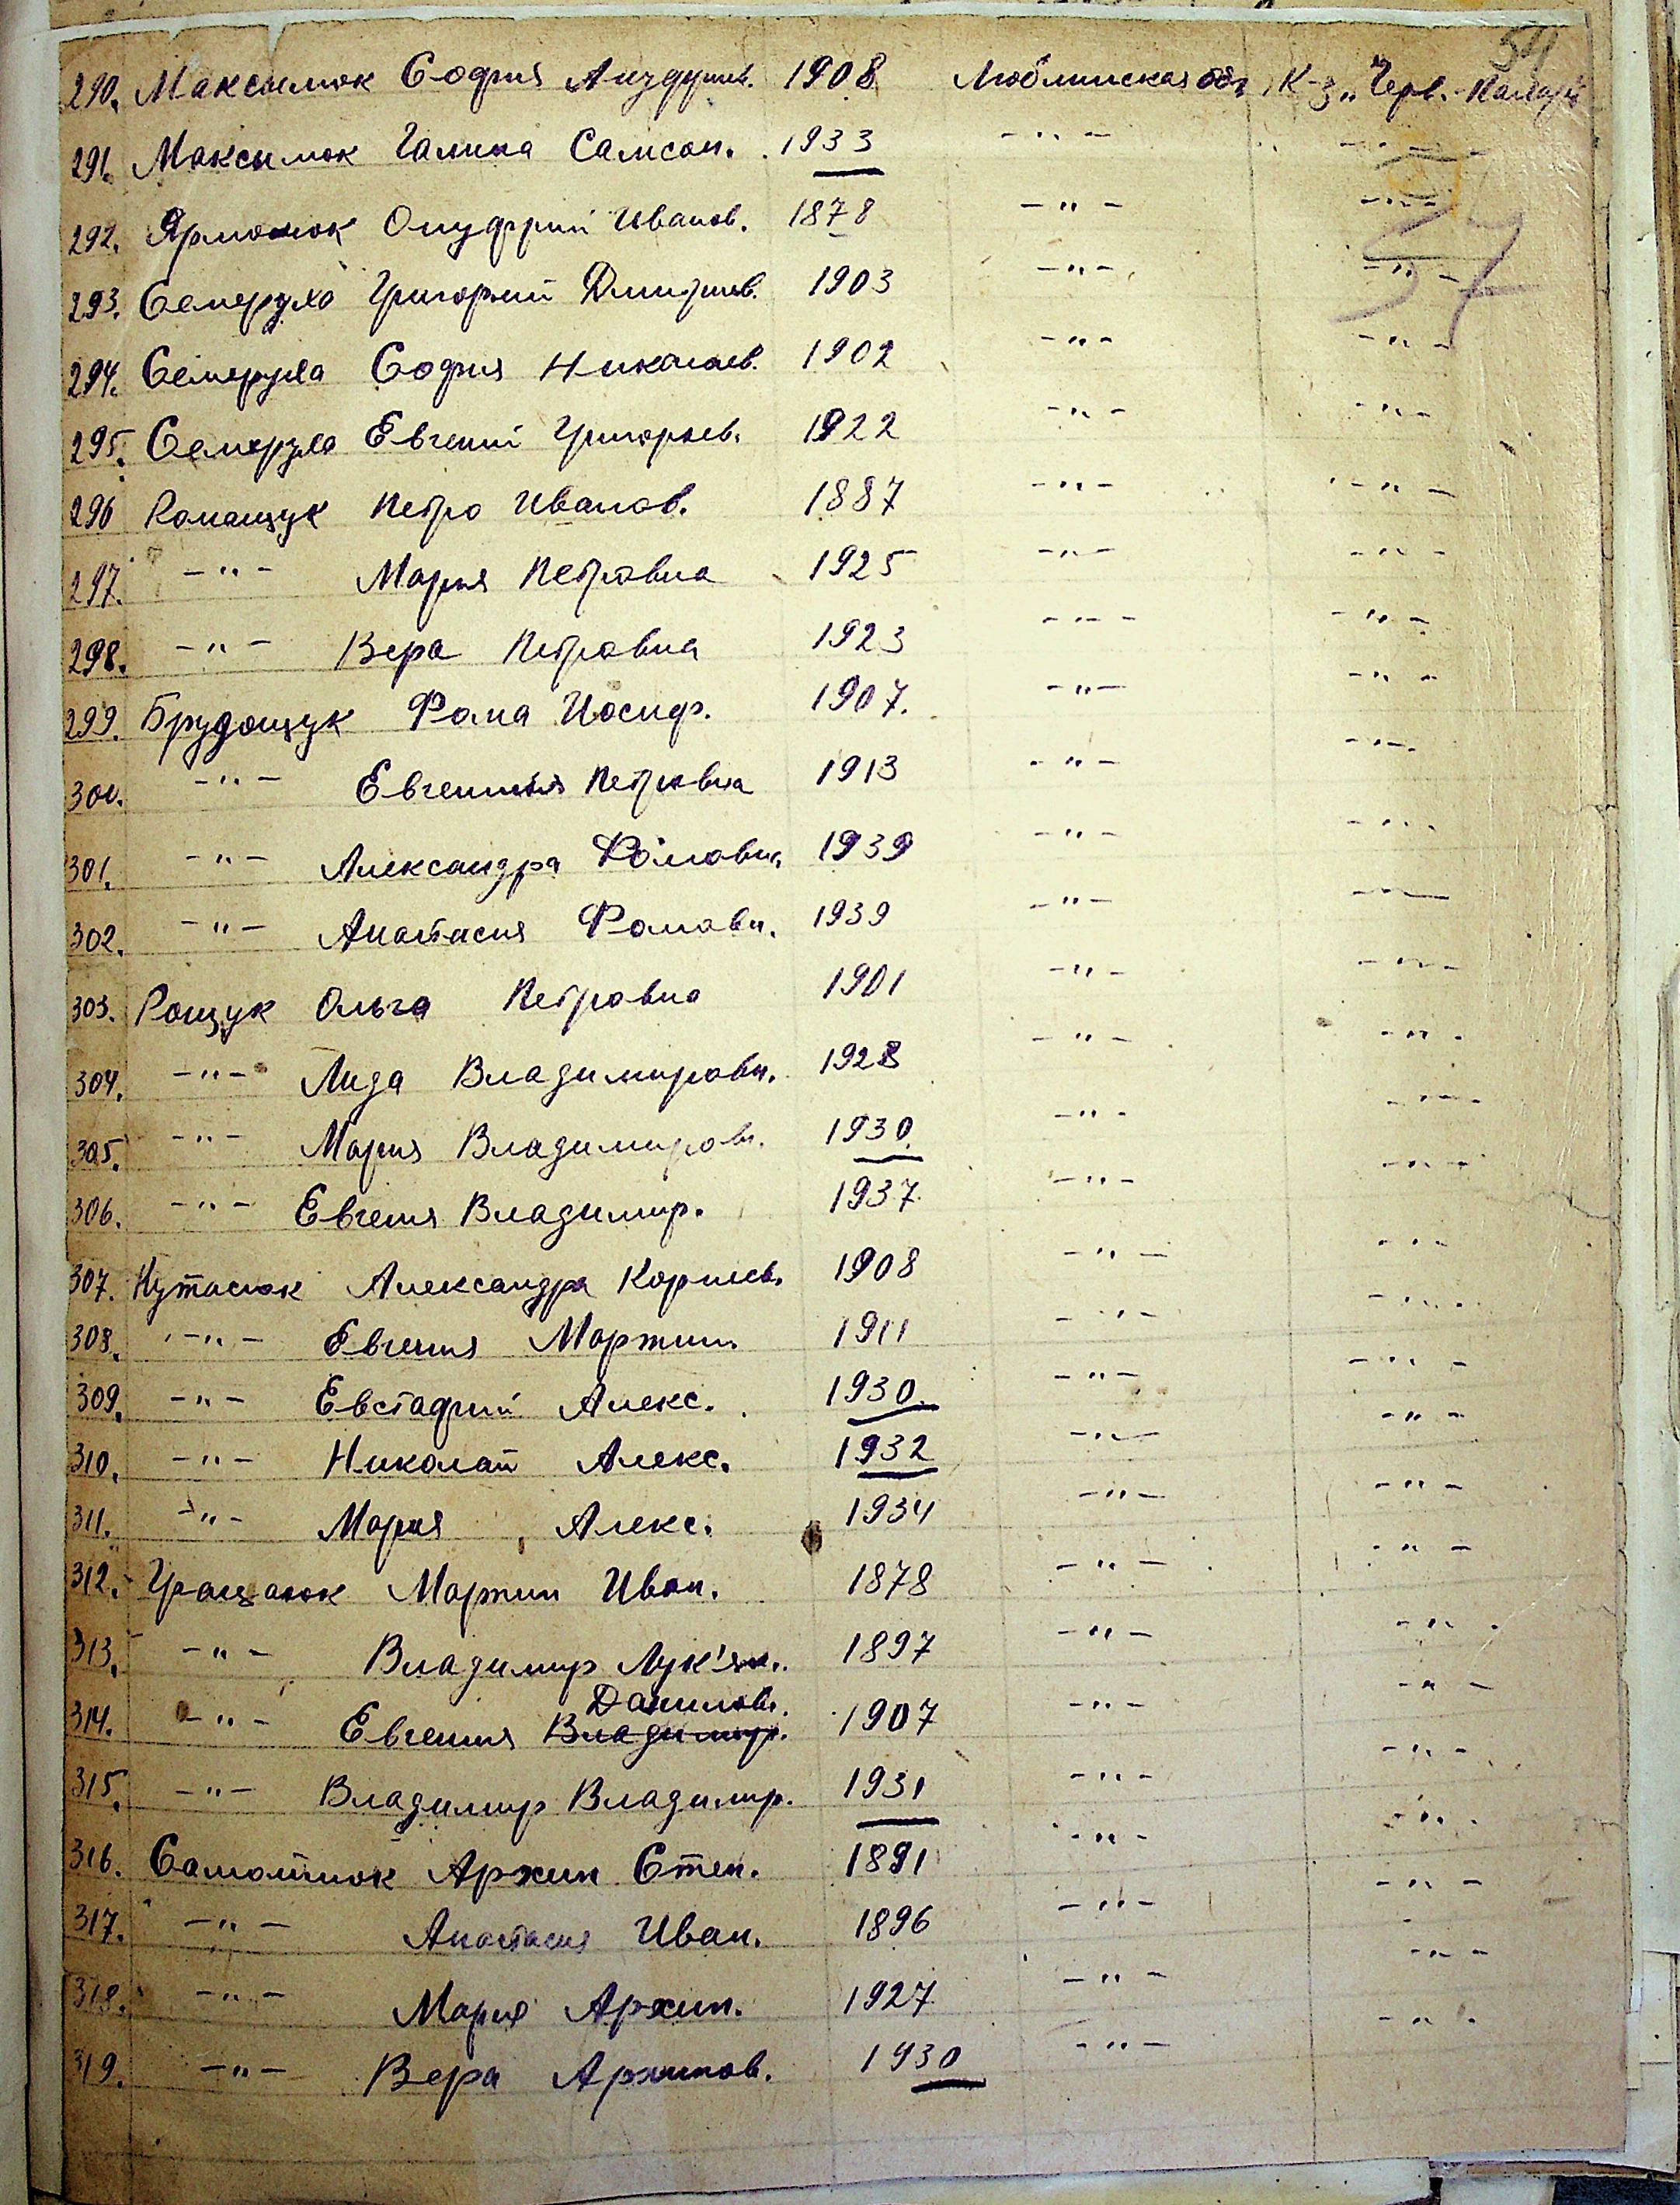 290. Максымюк София Андреев. 1908 Люблинская обл К-з „Черв.
291. Максымюк Галина Самсон. 1933 -"- -"-
292. Ярмолюк Онуфрий Иванов. 1878 -"- -"-
57
293. Семеруха Григорий Дмитриев. 1903 -"- -"-
294. Семеруха София Николаев. 1902 -"- -"-
295. Семеруха Евгений Григорьев. 1922 -"- -"-
296 Романщук Петро Иванов. 1887 -"- -"-
297. -"- Мария Петровна 1925 -"- -"-
298. -"- Вера Петровна 1923 -"- -"-
299. Брудащук Фома Иосиф. 1907. -"- -"-
300. -"- Евгения Петровна 1913 -"- -"-
301. -"- Александра Фомовна 1939 -"- -"-
302. -"- Анастасия Фомовн. 1939 -"- -"-
303. Рощук Ольга Петровна 1901 -"- -"-
304. -"- Лида Владимировн. 1928 -"- -"-
305. -"- Мария Владимировн. 1930. -"- -"-
306. -"- Евгения Владимир. 1937. -"- -"-
307. Кутасюк Александра Корниев. 1908 -"- -"-
308. -"- Евгения Мартин. 1911 -"- -"-
309. -"- Евстафий Алекс. 1930. -"- -"-
310. -"- Николай Алекс. 1932 -"- -"-
311. -"- Мария Алекс. 1934 -"- -"-
312. Мартин Иван. 1878 -"- -"-
313. -"- Владимир Лук'ян. 1897 -"- -"-
314. -"- Евгения Владимир. Данилов. 1907 -"- -"-
315. -"- Владимир Владимир. 1931 -"- -"-
316. Самотюк Архип Степ. 1891 -"- -"-
317. -"- Анастасия Иван. 1896 -"- -"-
318. -"- Мария Архип. 1927 -"- -"-
319. -"- Вера Архипов. 1930 -"- -"-